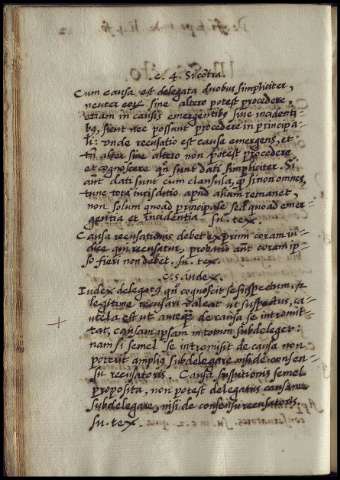 c. 4. Si cōtra.
Cum causa est delegata duobus simpliciter,
neuter eoꝝ sine altero potest procedere,
etiam in causis emergentibus siue incidenti
bꝰ, sicut nec possunt procedere in principa
li: unde recusatio est causa emergens, et
tn̄ alter sine altero non potest procedere
et cognoscere qn̄ sunt dati simpliciter. Si
aūt dati sunt cum clausula, q̄ si non omnes,
tunc tota iurisdictio apud alium remanet,
non solum quoad principale sed quoad emer
gentia et incidentia. su. tex.
Causa recusationis debet exprimi coram iu
dice qui recusatur, probatio aūt coram ip
so fieri non debet. su. tex.
c. 5. iudex.
Iudex delegatꝰ, qui cognoscit se suspectum, et
legitime recusari ualeat ut suspectus, cau
tela est ut anteq̄ de causa se intromit
tat, causam ipsam in totum subdeleget:
nam si semel se intromisit de causa non
poterit ampliꝰ subdelegare nisi de consen
su recusatoris. Causa suspitionis semel
proposita, non potest delegatus
subdelegare, nisi de consensu recusatoris.
su. tex.